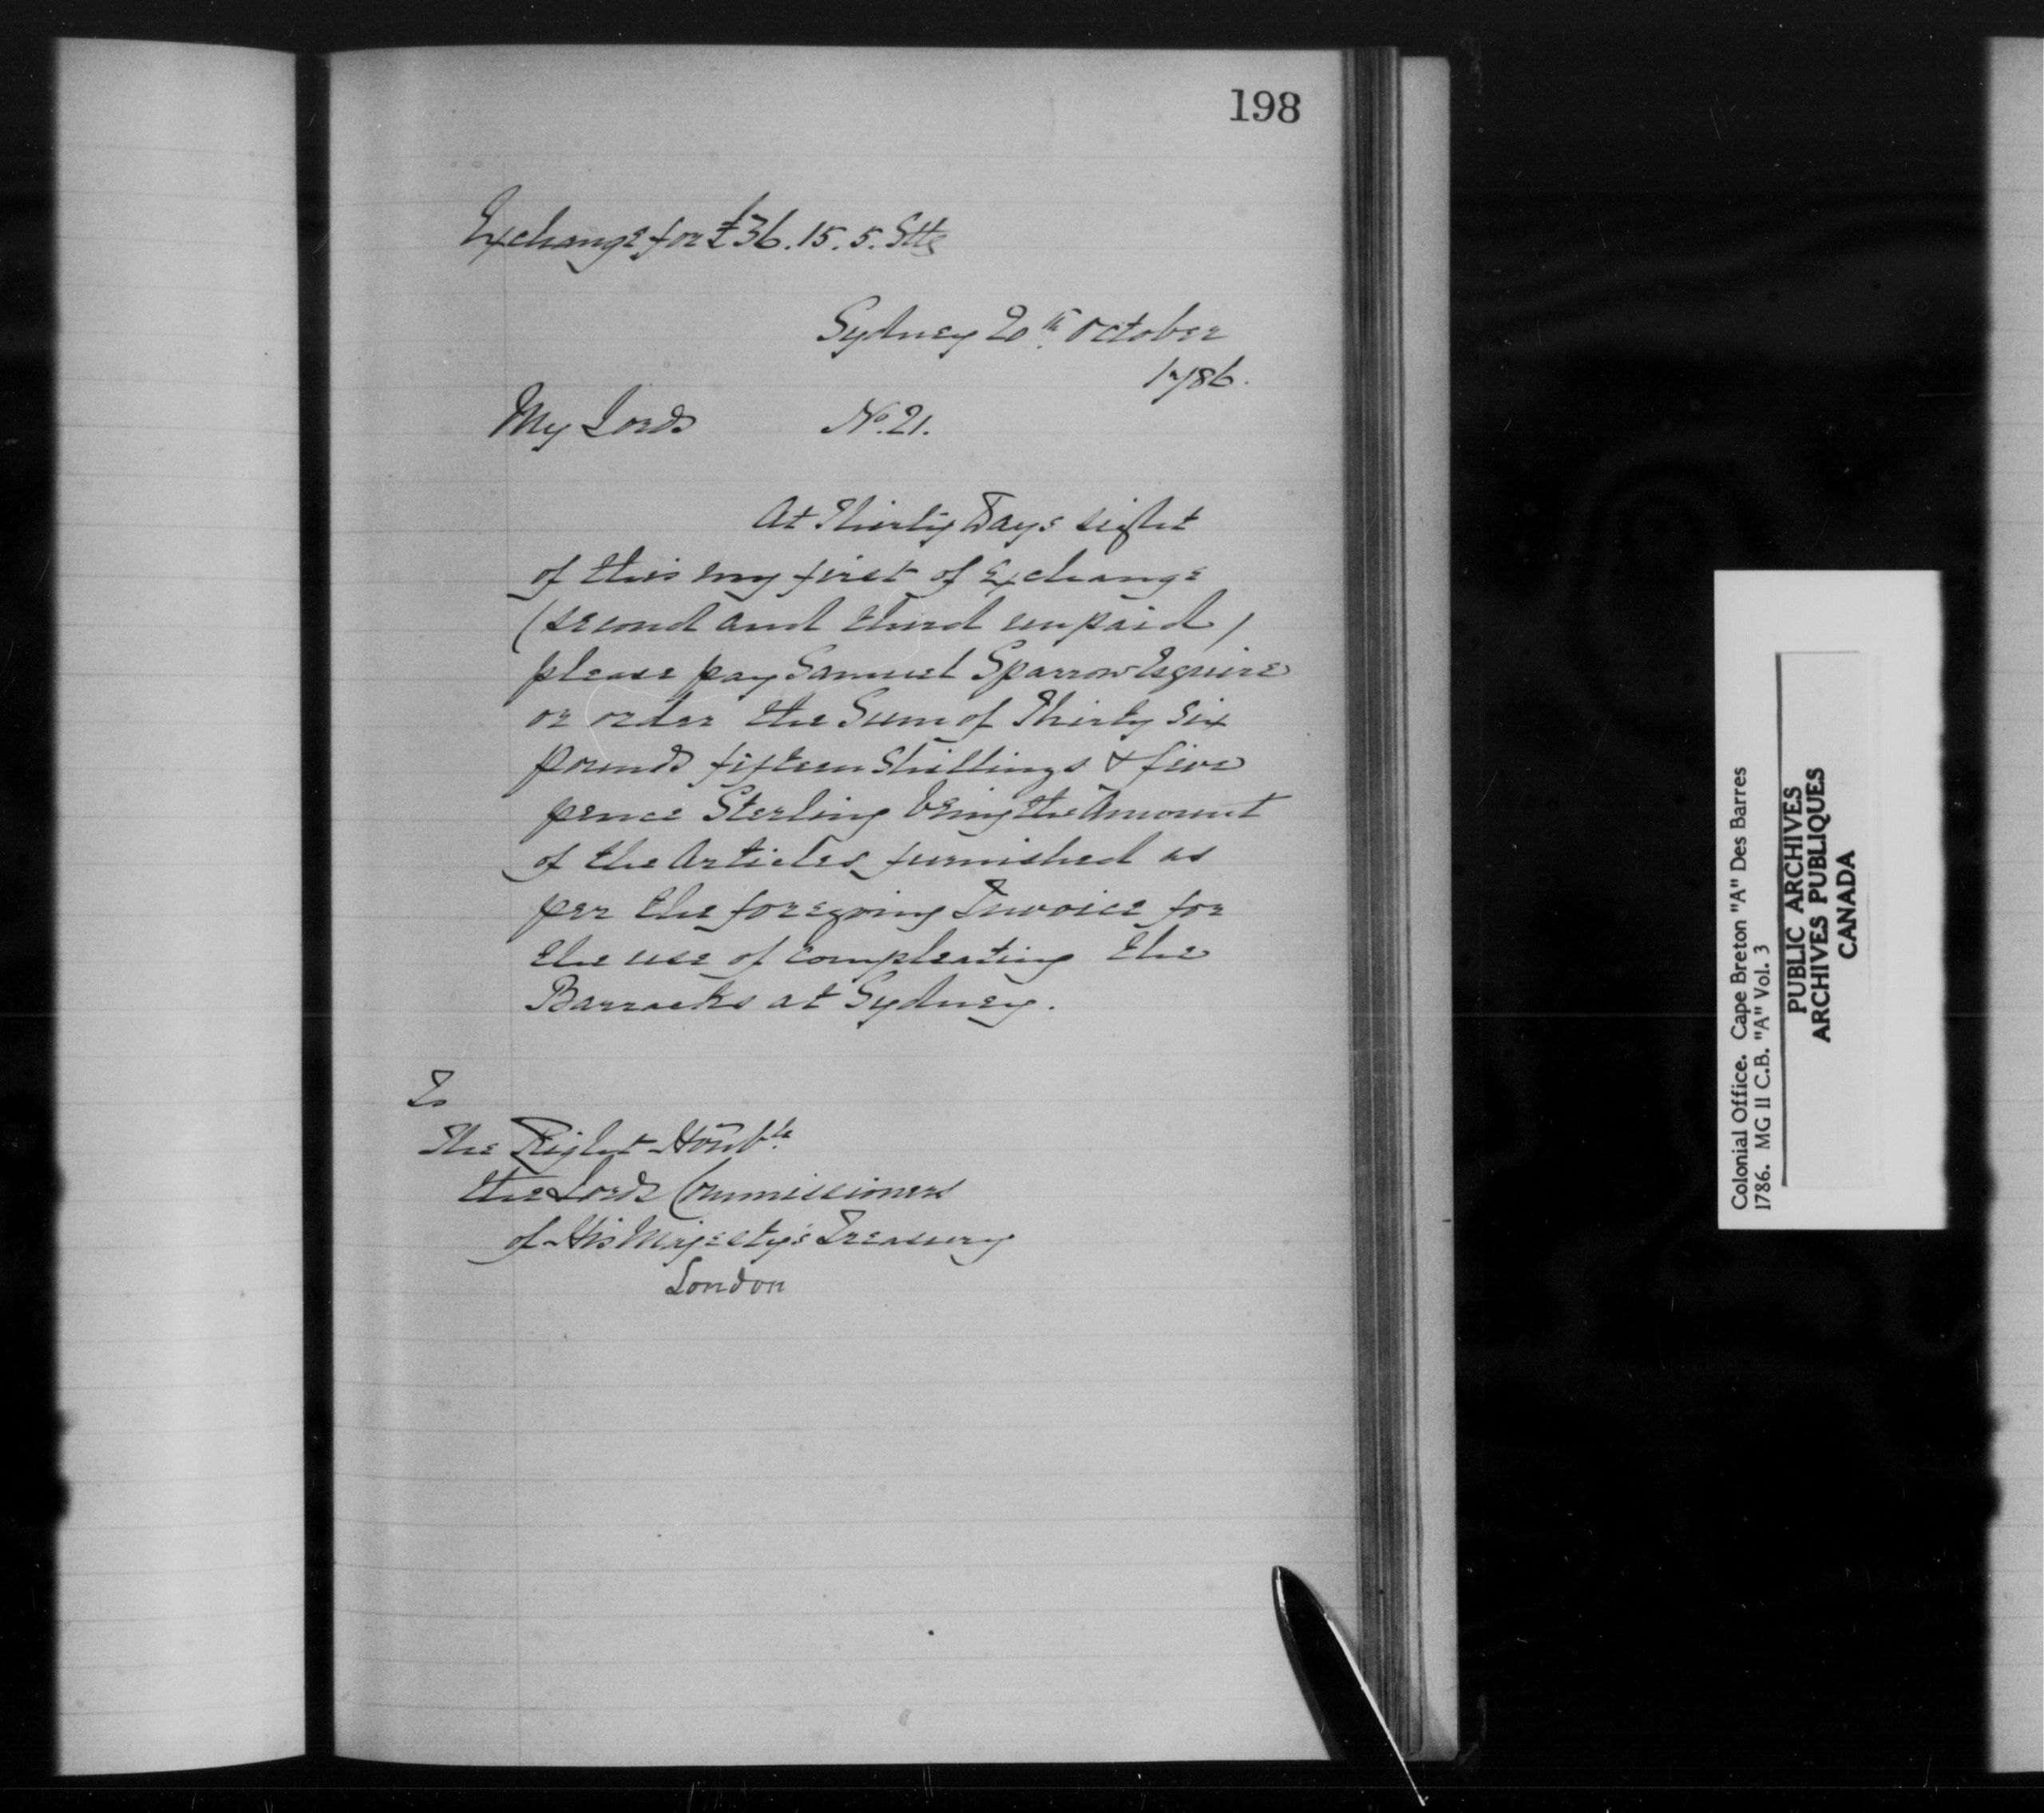 198
Exchange for £36.15.5. Stg
Sydney 20th October
1786.
My Lords No. 21.
At Thirty Days sight
of this my first of Exchange
(second and third unpaid)
please pay Samuel Sparrow Esquire
or order the Sum of Thirty Six
pounds fifteen Shillings & five
pence Sterling being the Amount
of the Articles furnished as
per the foregoing Invoice for
the use of compleating the
Barracks at Sydney.
To
The Right Honble
the Lords Commissioners
of His Majesty's Treasury
London
Colonial Office. Cape Breton "A" Des Barres
1786. MG 11 C.B. "A" Vol. 3
PUBLIC ARCHIVES
ARCHIVES PUBLIQUES
CANADA